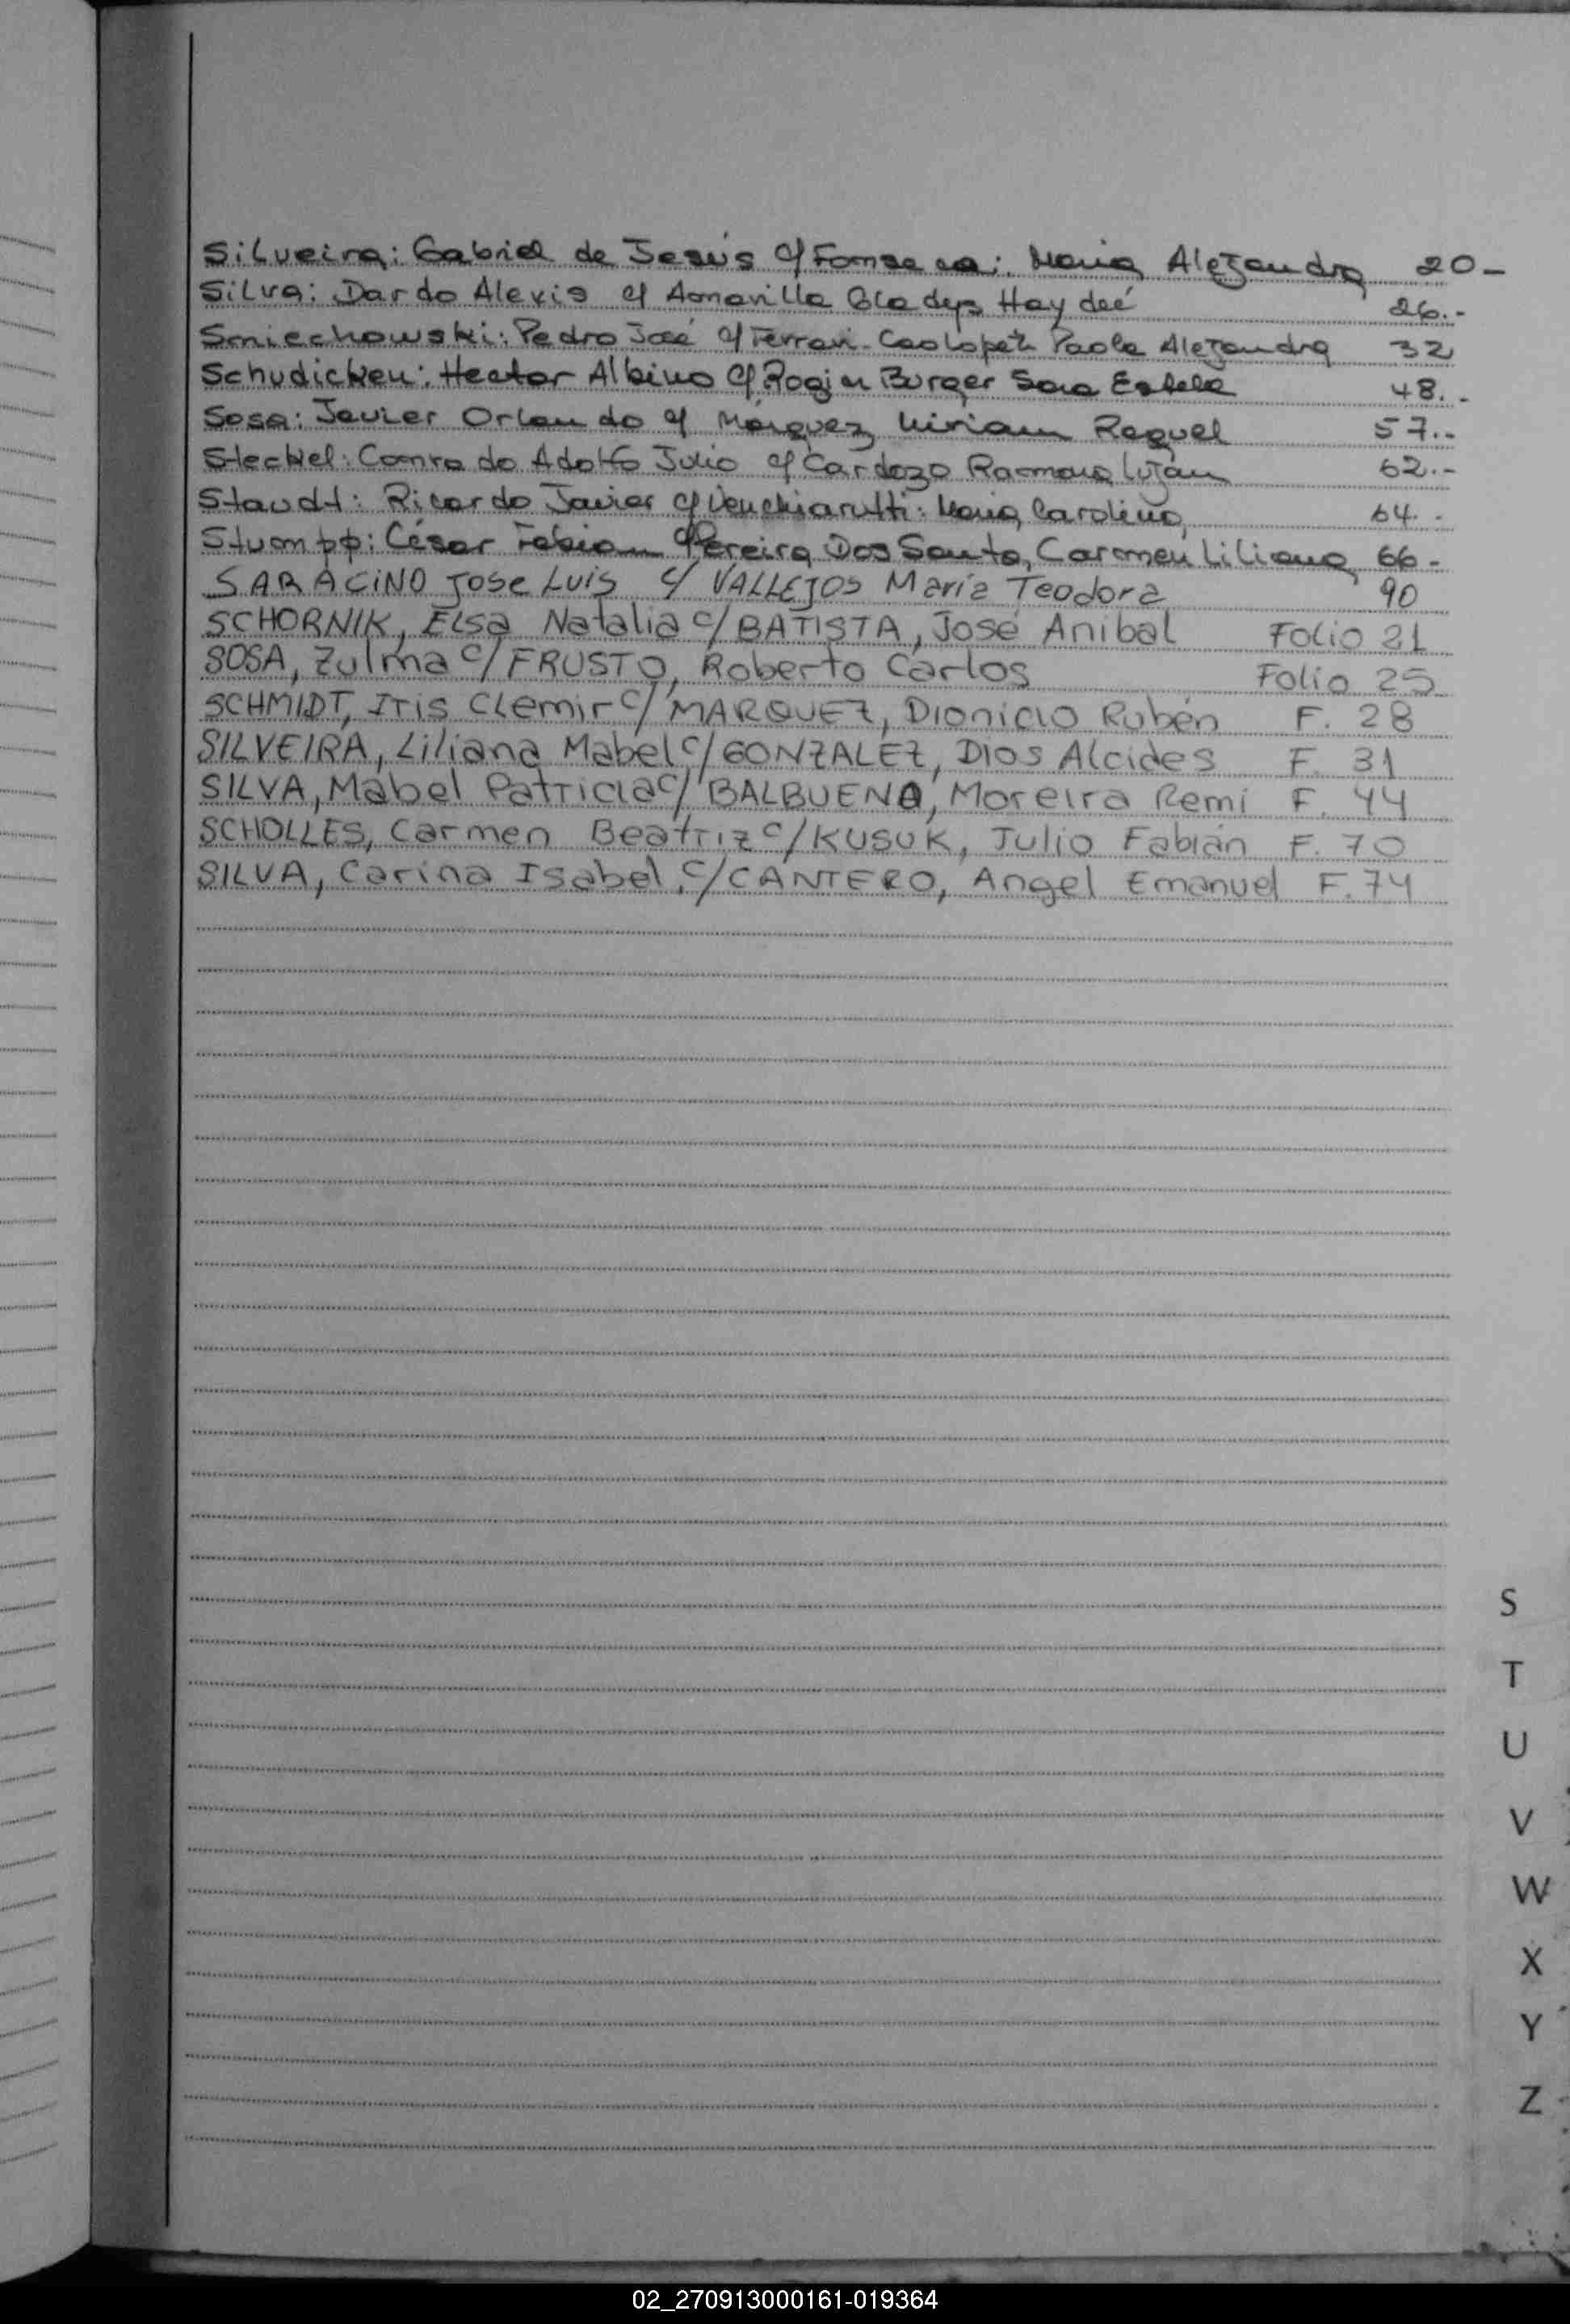 Silveira: Gabriel de Jesús c/ Fonseca: Maria Alejandra 20-
Silva: Dardo Alexis c/ Amavilla Gladys Haydeé 26.-
Smiechowski: Pedro José c/ Ferrari Paola Alejandra 32
Schudicken: Hector Albino c/ Burger Sara Estela 48.-
Sosa: Javier Orlando c/ Márquez Miriam Raquel 57.-
Steckel: Conrado Adolfo Julio c/ Cardozo Ramona Luján 62.-
Staudt: Ricardo Javier c/ Venchiarutti: Maria Carolina 64.-
Stumpp: César Fabian c/ Pereira Dos Santo, Carmen Liliana 66-
SARACINO Jose Luis c/ VALLEJOS María Teodora 90
SCHORNIK, Elsa Natalia c/ BATISTA, José Anibal Folio 21
SOSA, Zulma c/ FRUSTO, Roberto Carlos Folio 25
SCHMIDT, Iris Clemir c/ MARQUEZ, Dionicio Rubén F. 28
SILVEIRA, Liliana Mabel c/ GONZALEZ, Dios Alcides F. 31
SILVA, Mabel Patricia c/ BALBUENA, Moreira Remi F. 44
SCHOLLES, Carmen Beatriz c/ KUSUK, Julio Fabián F. 70
SILVA, Carina Isabel, c/ CANTERO, Angel Emanuel F. 74
S
T
U
V
W
X
Y
Z
02_270913000161-019364